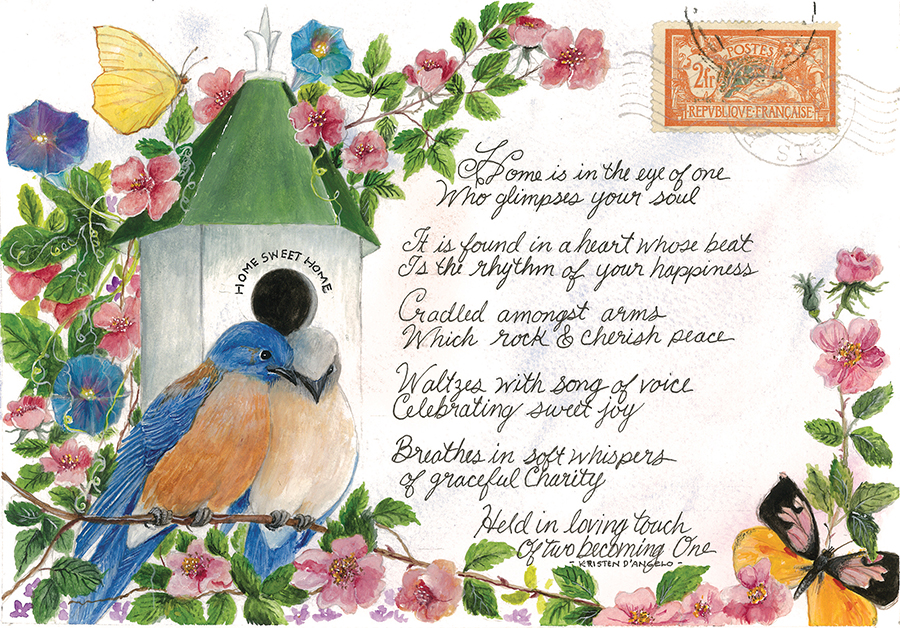 POSTES
2fr
REPVBLIQVE·FRANÇAISE
HOME SWEET HOME
Home is in the eye of one
Who glimpses your soul
It is found in a heart whose beat
Is the rhythm of your happiness
Cradled amongst arms
Which rock & cherish peace
Waltzes with song of voice
Celebrating sweet joy
Breathes in soft whispers
of graceful Charity
Held in loving touch
Of two becoming One
- KRISTEN D'ANGELO -